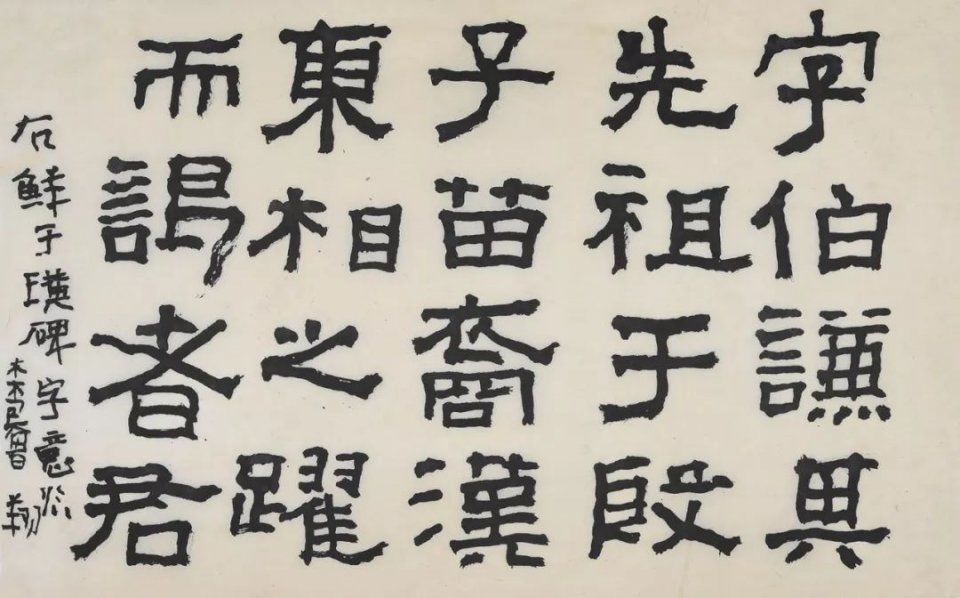 字伯謙其
先祖于殷
子苗裔漢
東相之躍
而謁者君
右鮮于璜碑字意臨